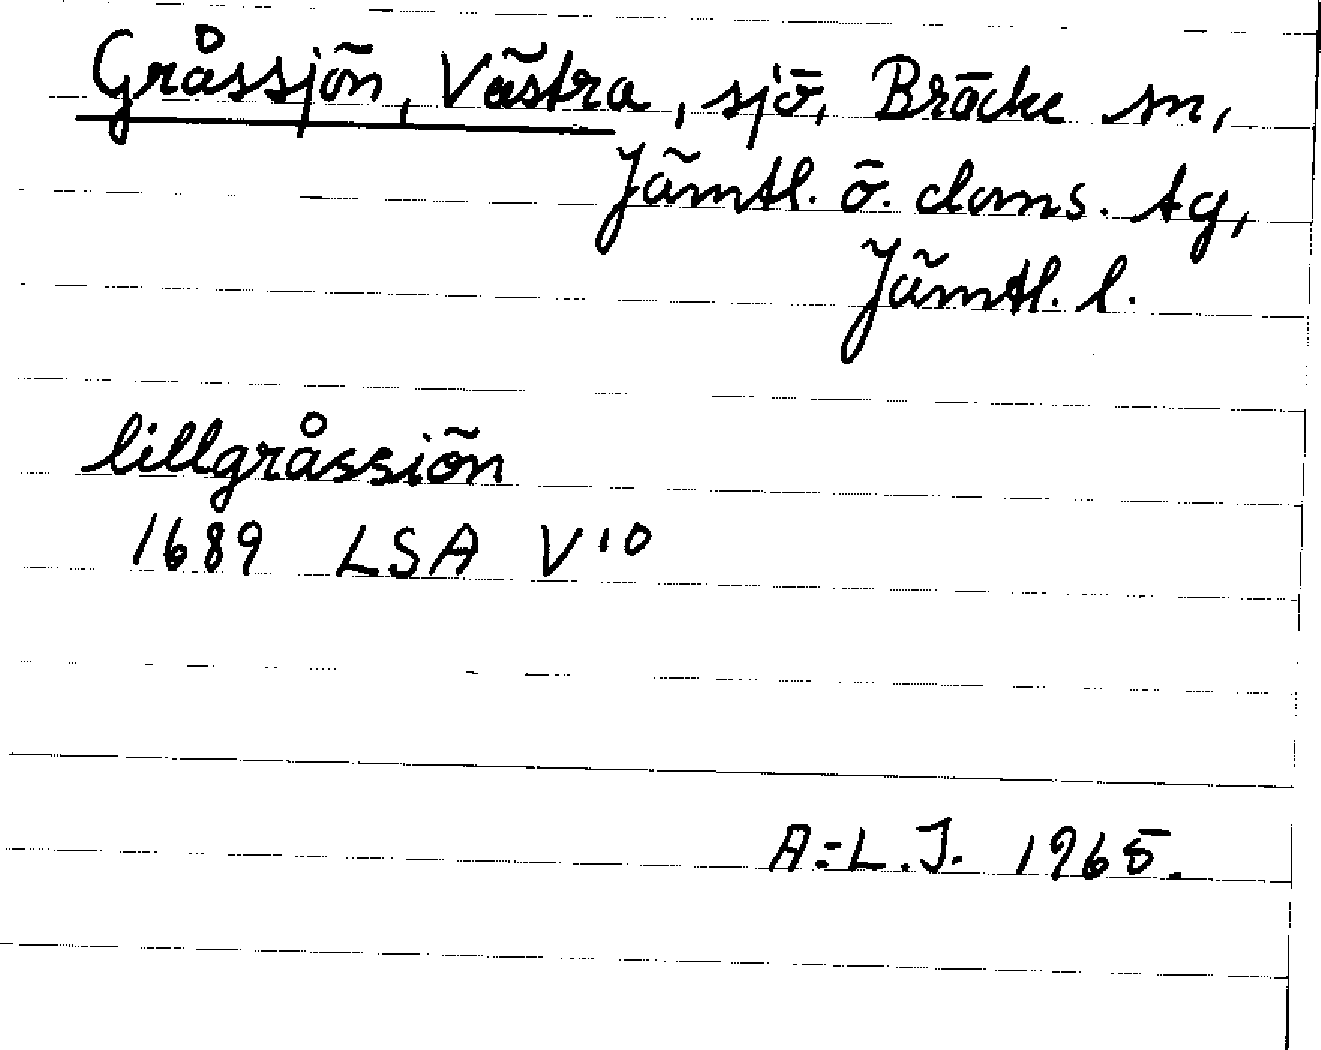 Gråssjön, Västra, sjö, Bräcke sn,
Jämtl. ö. doms. tg,
Jämtl. l.
lillgråssiön
1689 LSA V10
A=L.J. 1965.